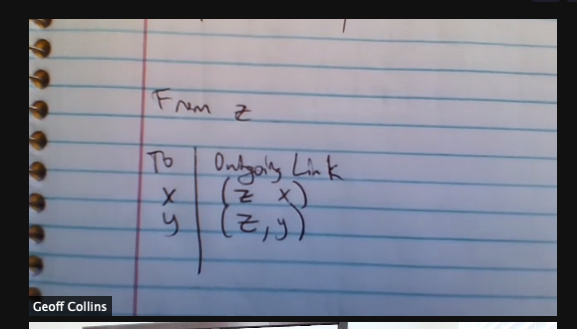 From z
To Outgoing Link
x (z x)
y (z, y)
Geoff Collins